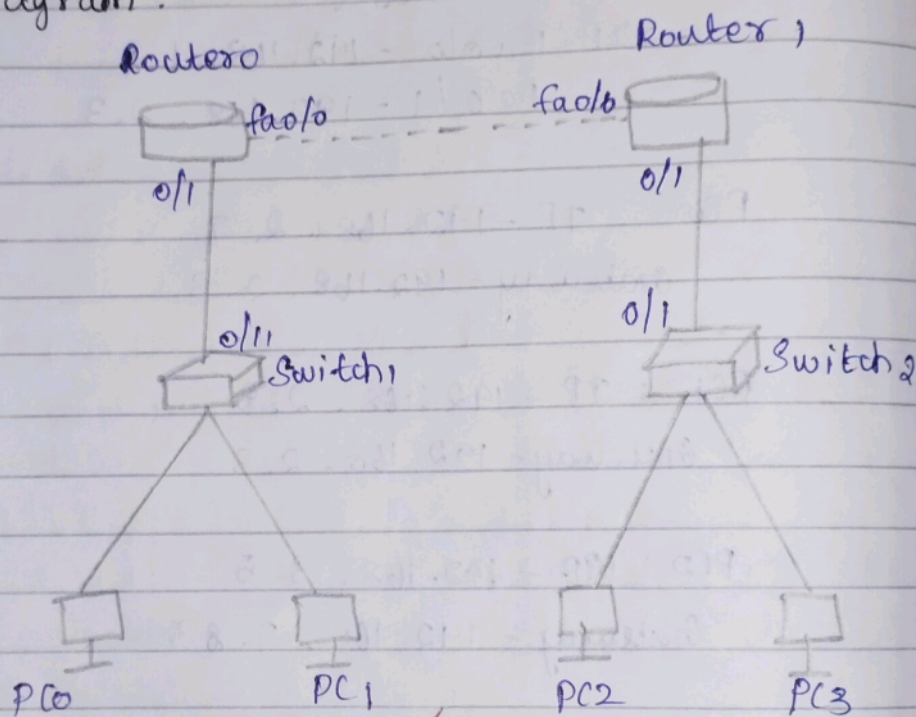 agram :
Router0
Router 1
fa0/0
fa0/0
0/1
0/1
0/11
0/1
Switch1
Switch2
PC0
PC1
PC2
PC3